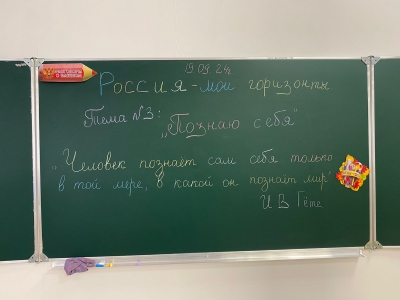 19.09.24
Россия - мои горизонты
Тема №3:
„Познаю себя"
„Человек познаёт сам себя только
в той мере, в какой он познаёт мир"
И В Гёте